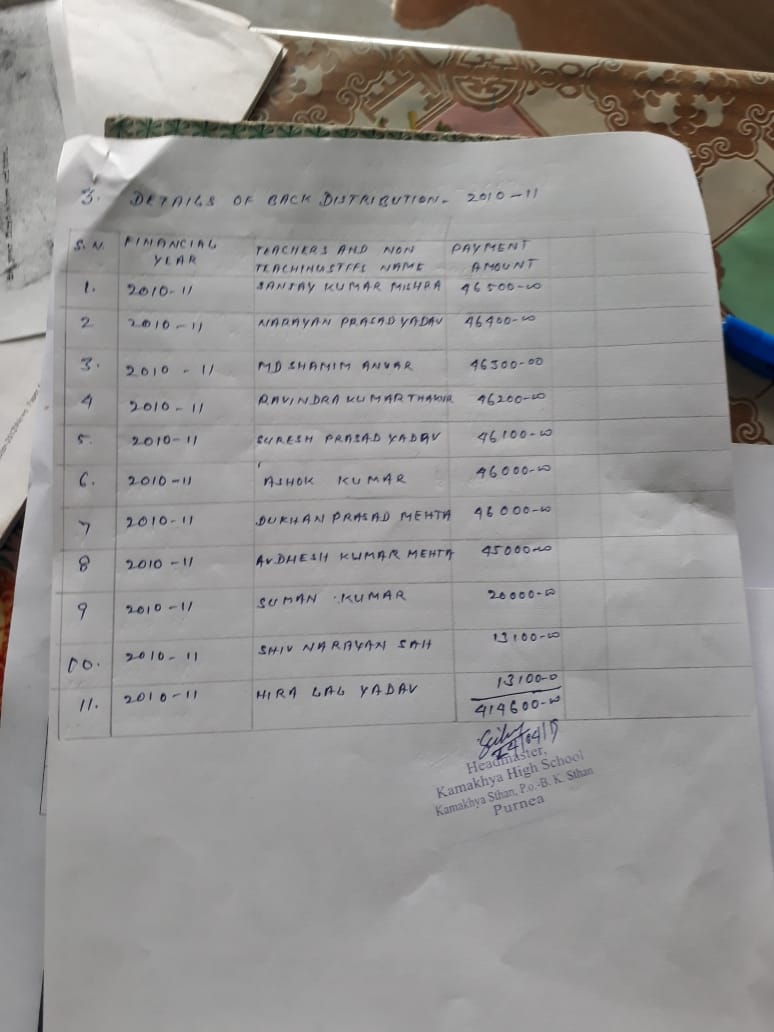 3. DETAILS OF BACK DISTRIBUTION- 2010-11
S.N. FINANCIAL YEAR TEACHERS AND NON TEACHING STFFS NAME PAYMENT AMOUNT
1. 2010-11 SANJAY KUMAR MISHRA 46500-00
2 2010-11 NARAYAN PRASAD YADAV 46400-00
3. 2010-11 MD SHAMIM ANVAR 46300-00
4 2010-11 RAVINDRA KUMAR THAKUR 46200-00
5. 2010-11 SURESH PRASAD YADAV 46100-00
6. 2010-11 ASHOK KUMAR 46000-00
7 2010-11 DUKHAN PRASAD MEHTA 46000-00
8 2010-11 AVDHESH KUMAR MEHTA 45000-00
9 2010-11 SUMAN KUMAR 20000-00
10. 2010-11 SHIV NARAYAN SAH 13100-00
11. 2010-11 HIRA LAL YADAV 13100-0
414600-00
Headmaster,
Kamakhya High School
Kamakhya Sthan, P.o.-B. K. Sthan
Purnea